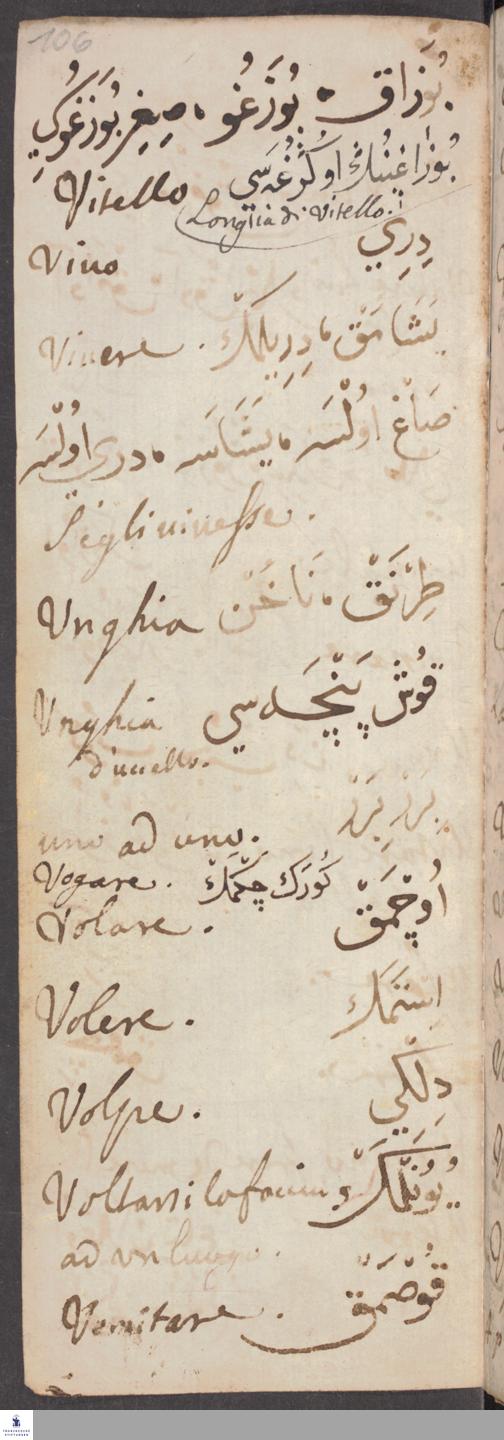 106
بُوزَاق ، بُوزَغُو ، صِغِر بُوزَغُوكِي
Vitello بُوزَاغِينُك اوكُرغُه سَي
Longia di Vitello.
Vivo دِرِي
Vivere. يَشَامَق ، دِرِيلمَك
صَاغ اوُلْسَه ، يَشَاسَه ، دري اوُلْسَه
S'egli vivesse.
Unghia طِرْنَق ، نَاخُن
Unghia قُوش پَنْچَه سي
d'uccello.
uno ad uno. بِرَر بِرَر
Vogare. كُورَك چَكمَك
Volare. اُوچْمَق
Volere. اِستَمَك
Volpe. دِلكِي
Voltarsi يُونَلمَك
ad un luogo.
Vomitare. قُوصْمَق